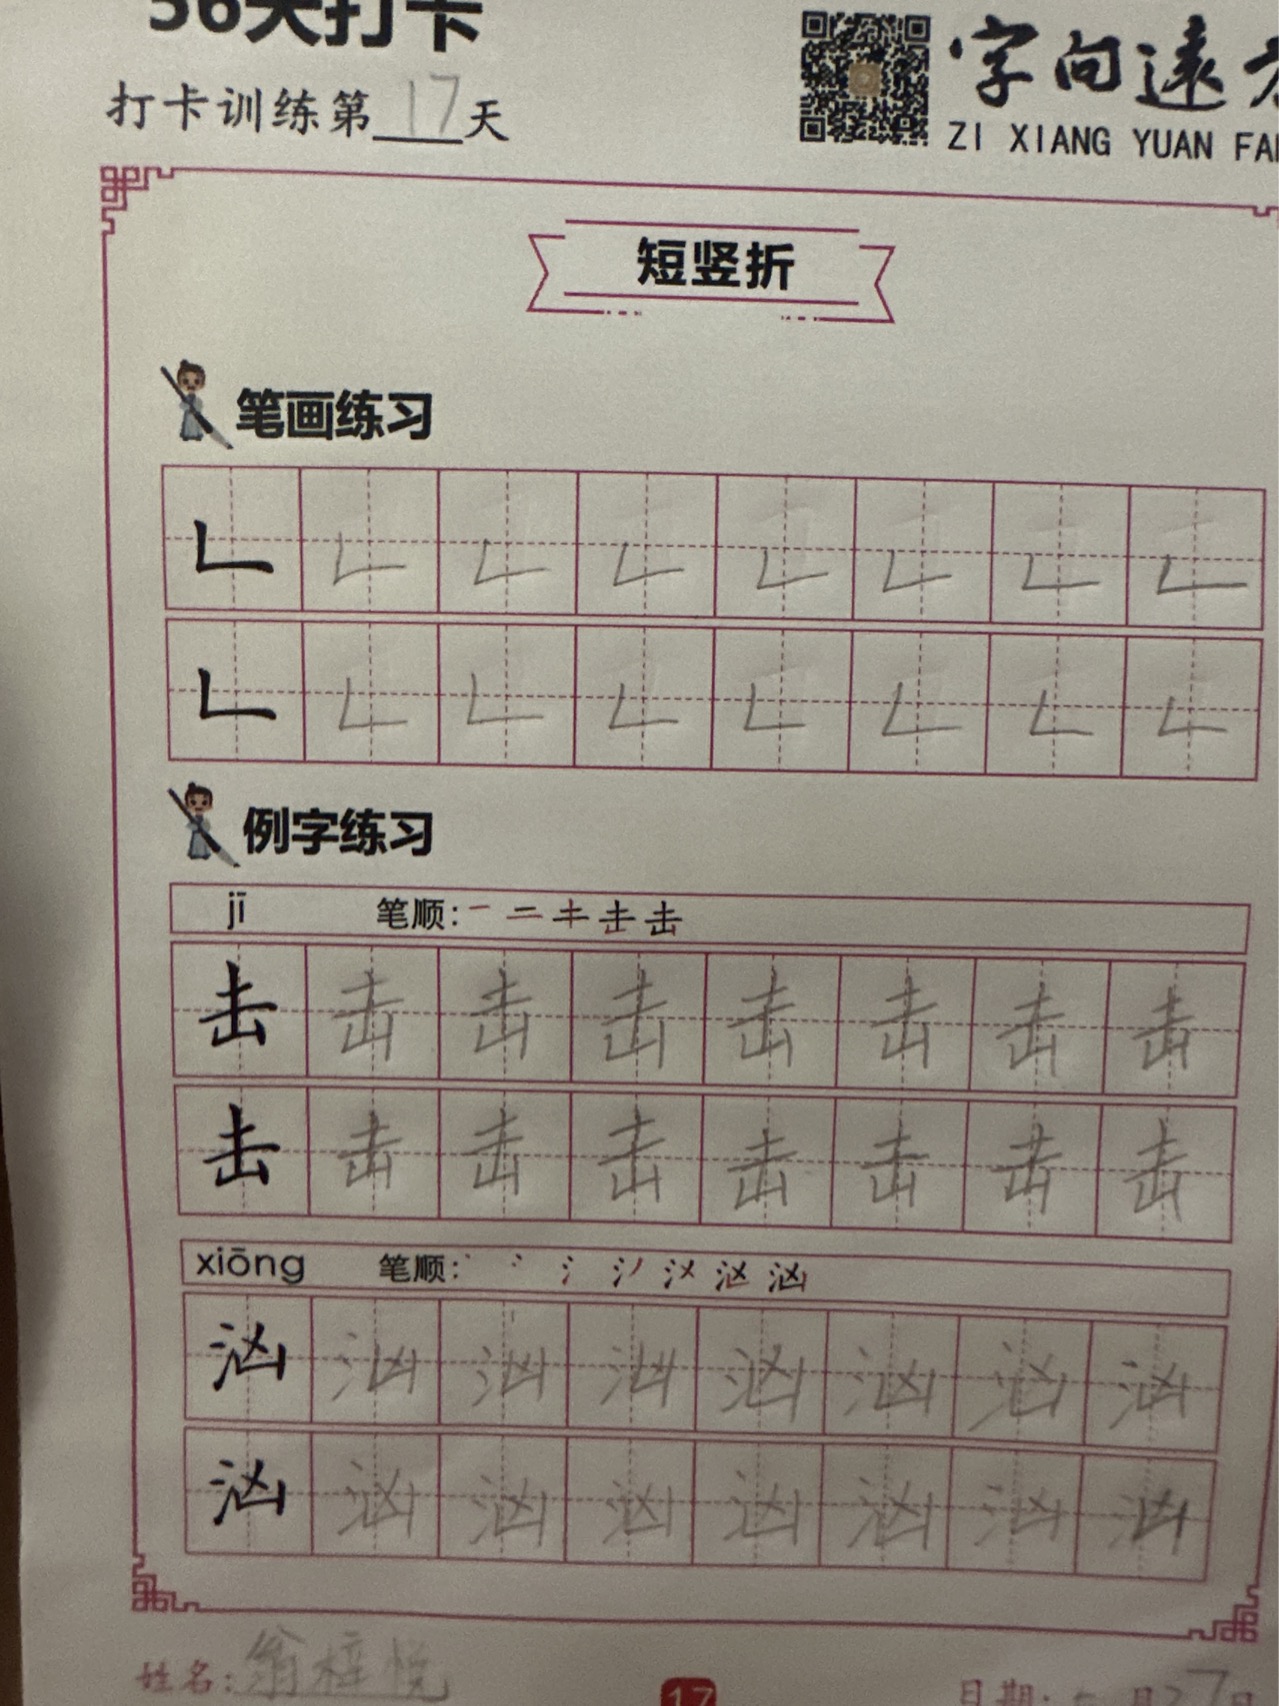 36天打卡
打卡训练第17天
字向遠方
ZI XIANG YUAN FA
短竖折
笔画练习
例字练习
jī 笔顺:
击 击 击 击 击 击 击 击
击 击 击 击 击 击 击 击
xiōng 笔顺:
汹 汹 汹 汹 汹 汹 汹 汹
汹 汹 汹 汹 汹 汹 汹 汹
姓名:翁梓悦
17
日期: 月27日